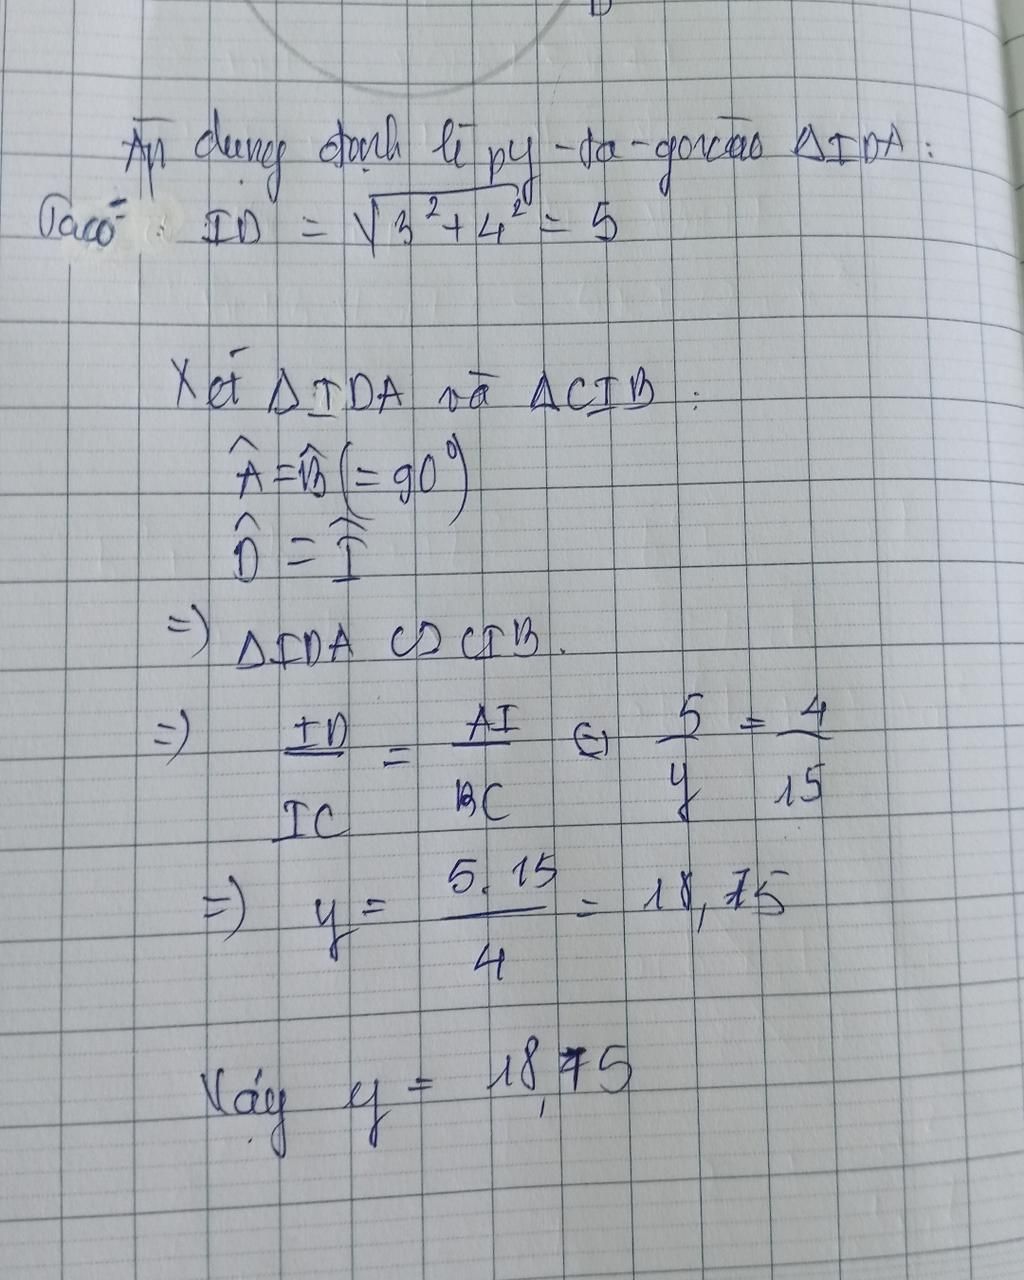 Áp dụng định lí py-ta-go vào ΔIDA:
Ta có: ID = √3²+4² = 5
Xét ΔIDA và ΔCIB:
Â = B̂ (= 90°)
D̂ = Î
=) ΔIDA ∽ CIB.
=) ID/IC = AI/BC ⇔ 5/y = 4/15
=) y = 5.15/4 = 18,75
Vậy y = 18,75